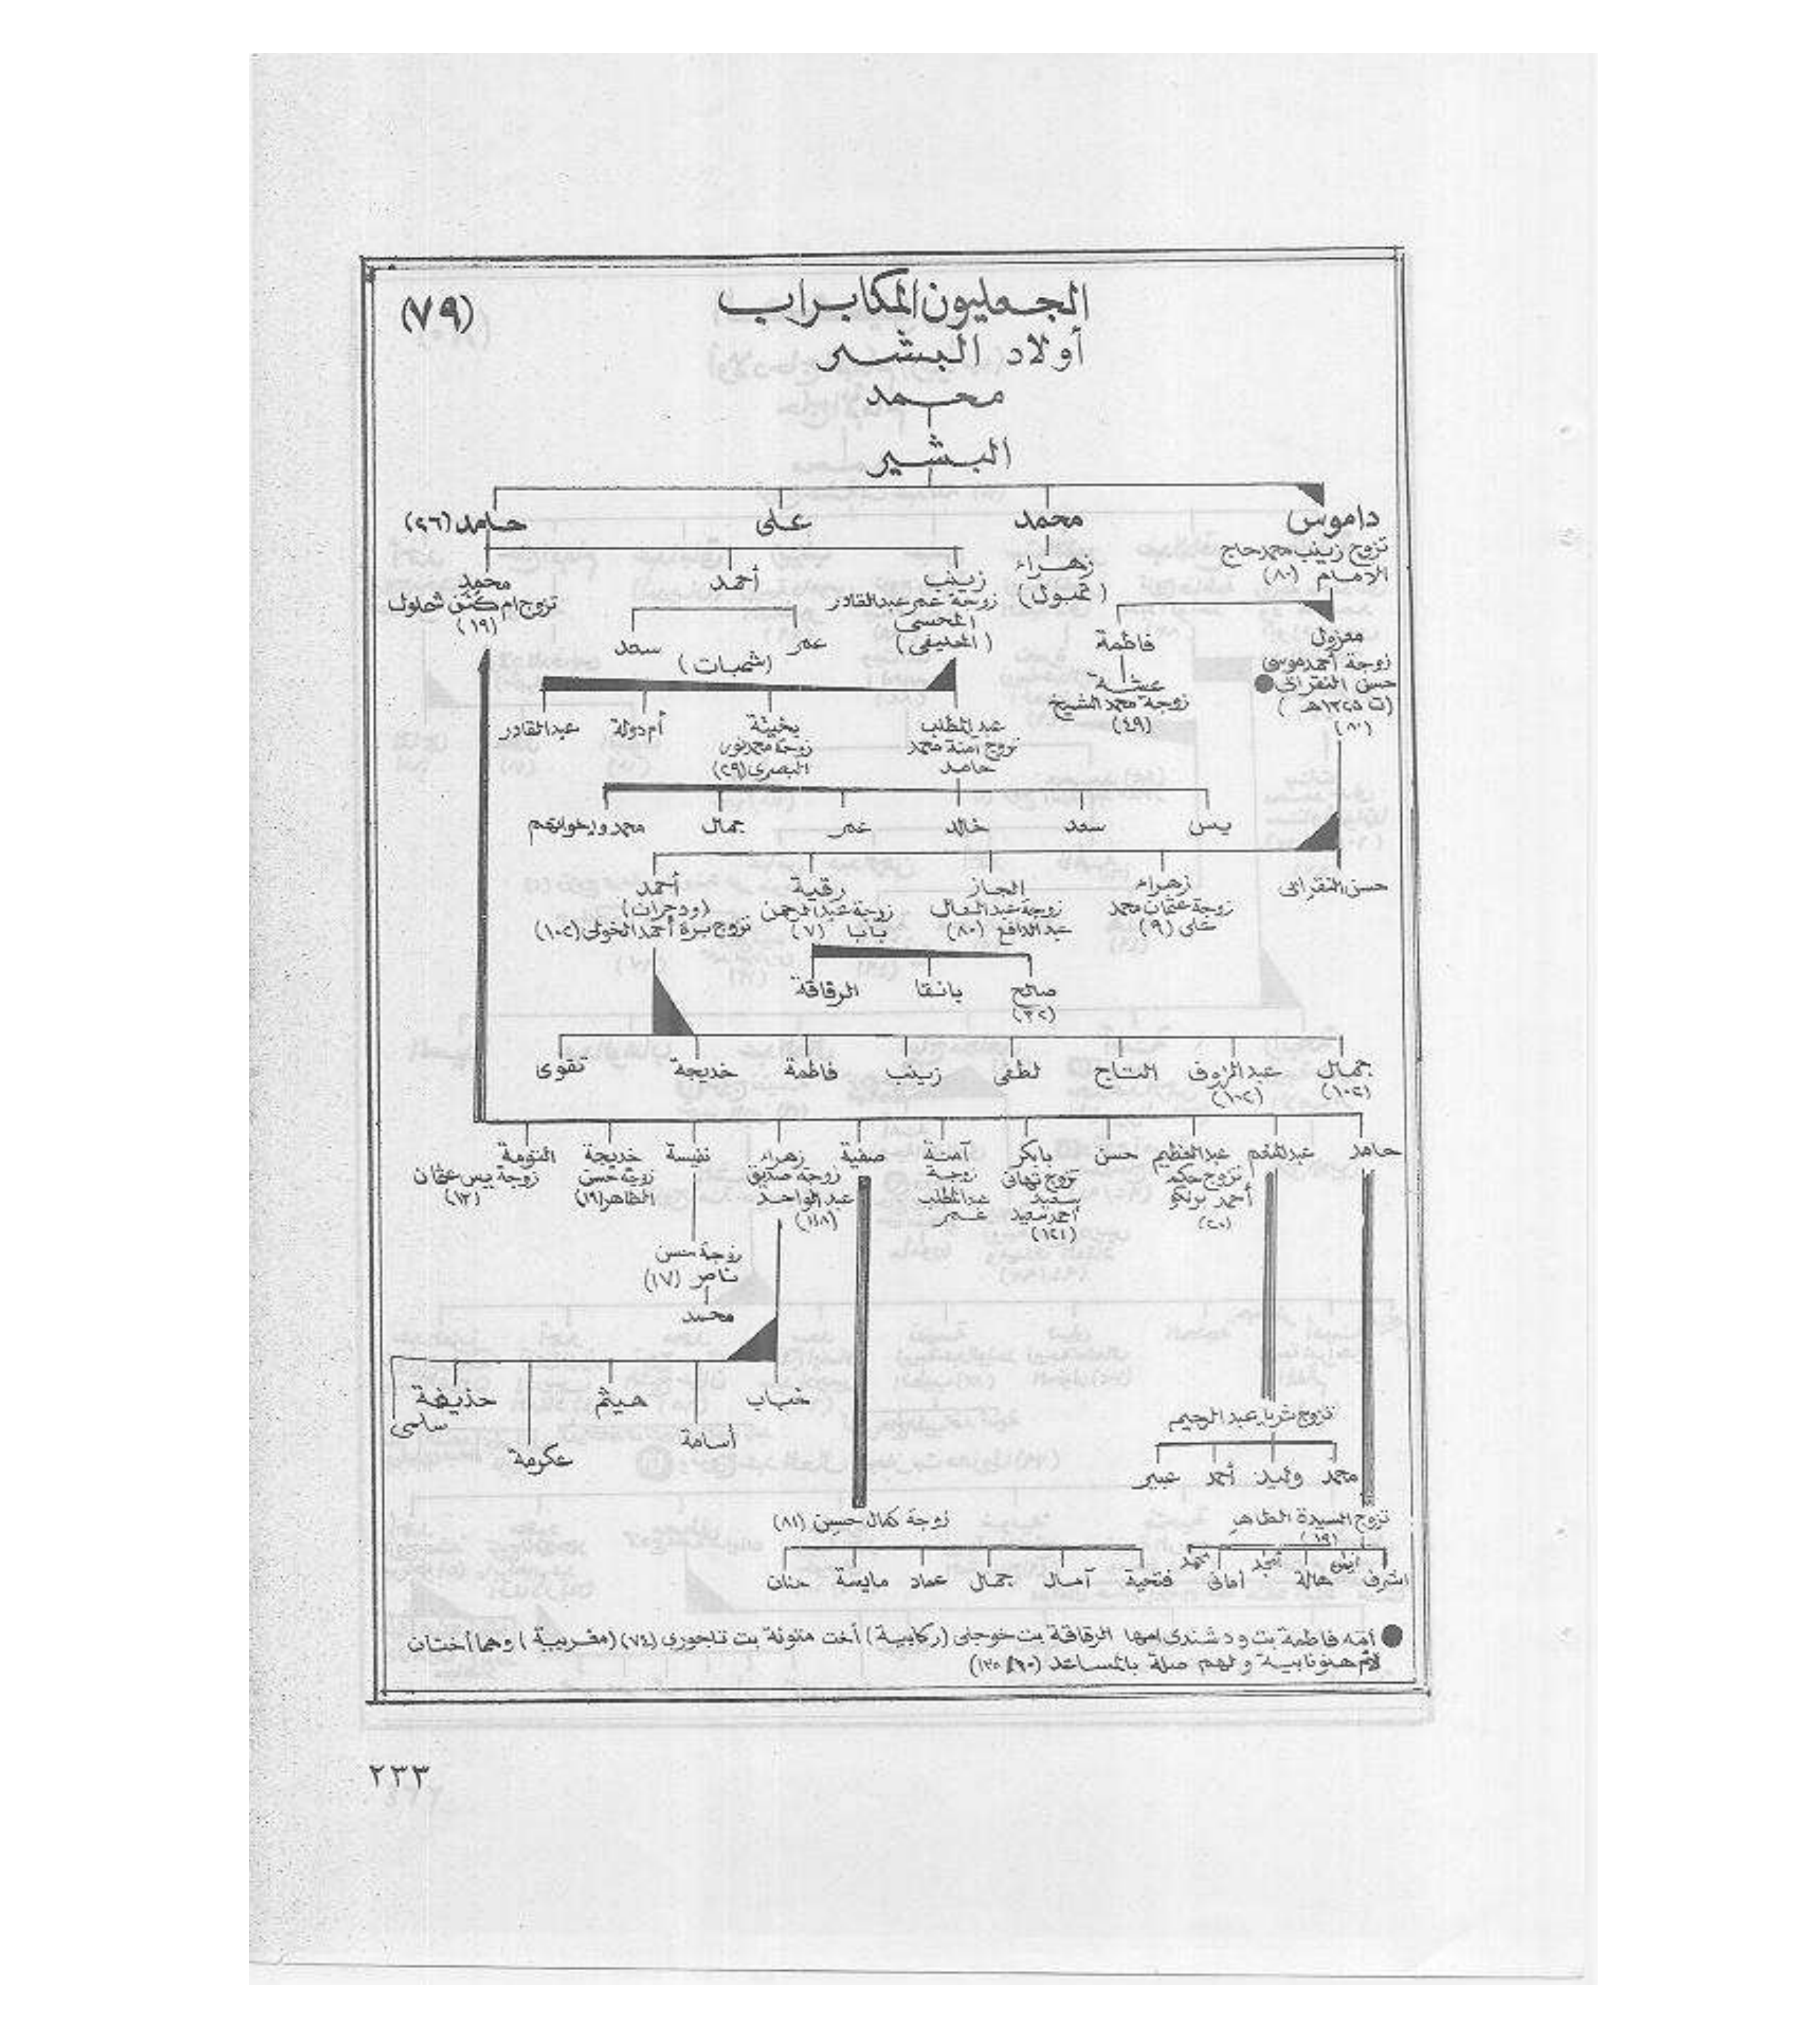 (٧٩)
الجعليون المكابراب
أولاد البشير
محمد
البشير
داموس
محمد
على
حامد (٢٦)
تزوج زينب محمد حاج
الامام (٨٠)
زهراء
(تمبول)
زينب
زوجة عمر عبدالقادر
المحسى
(العليفى)
أحمد
محمد
تزوج ام كلثوم شحلول
(١٩)
معزول
زوجة أحمد موسى
حسن النقرابى
(ت ١٣٤٥هـ)
(٨٠)
فاطمة
عشة
زوجة محمد الشيخ
(٤٩)
عمر
سعد
(شمبات)
عبدالمطلب
تزوج آمنة محمد
حامد
بخيتة
زوجة محمد نور
البصرى (٢٩)
أم دولة
عبدالقادر
يس
سعد
خالد
عمر
جمال
محمد وإخوانهم
حسن النقرابى
زهراء
زوجة عثمان محمد
على (٩)
الجاز
زوجة عبدالعال
عبدالدافع (٨٠)
رقية
زوجة عبدالرحمن
بابا (٧)
أحمد
(ود جران)
تزوج برة أحمد الخولى (١٠٢)
صالح
(٣٢)
بانقا
الرقاقة
جمال
(١٠٢)
عبدالرؤوف
(١٠٢)
التاج
لطفى
زينب
فاطمة
خديجة
تقوى
حامد
عبدالمنعم
عبدالعظيم
تزوج حكمه
أحمد برنكو
(٢٠)
حسن
بابكر
تزوج تهانى
سعيد
أحمد سعيد
(١٢١)
آمنة
زوجة
عبدالمطلب
عمر
صفية
زهراء
زوجة صديق
عبدالواحد
(١١٨)
نفيسة
خديجة
زوجة حسن
الطاهر (١٩)
التومة
زوجة يس عثمان
(١٣)
زوجة حسن
ناصر (١٧)
محمد
خباب
أسامة
هيثم
عكرمة
حذيفة
سلمى
تزوج ثريا عبدالرحيم
محمد
وليد
أحمد
عبير
تزوج السيدة الطاهر
(١٩)
اشرف
أيمن
هالة
أمجد
أمانى
محمد
زوجة كمال حسين (٨١)
فتحية
آمال
جمال
عماد
مايسة
حنان
● امه فاطمة بت ود شندى امها الرقاقة بت خوجلى (ركابية) أخت منونة بت تاجورى (٧٤) (مغربية) وهما أختان
لأم هنونابية ولهم صلة بالمساعد
٢٣٣